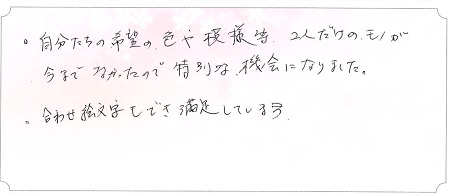 。自分たちの希望の、色や模様等、2人だけの、モノが
今までなかったので特別な、機会になりました。
。合わせ絵文字もでき満足している